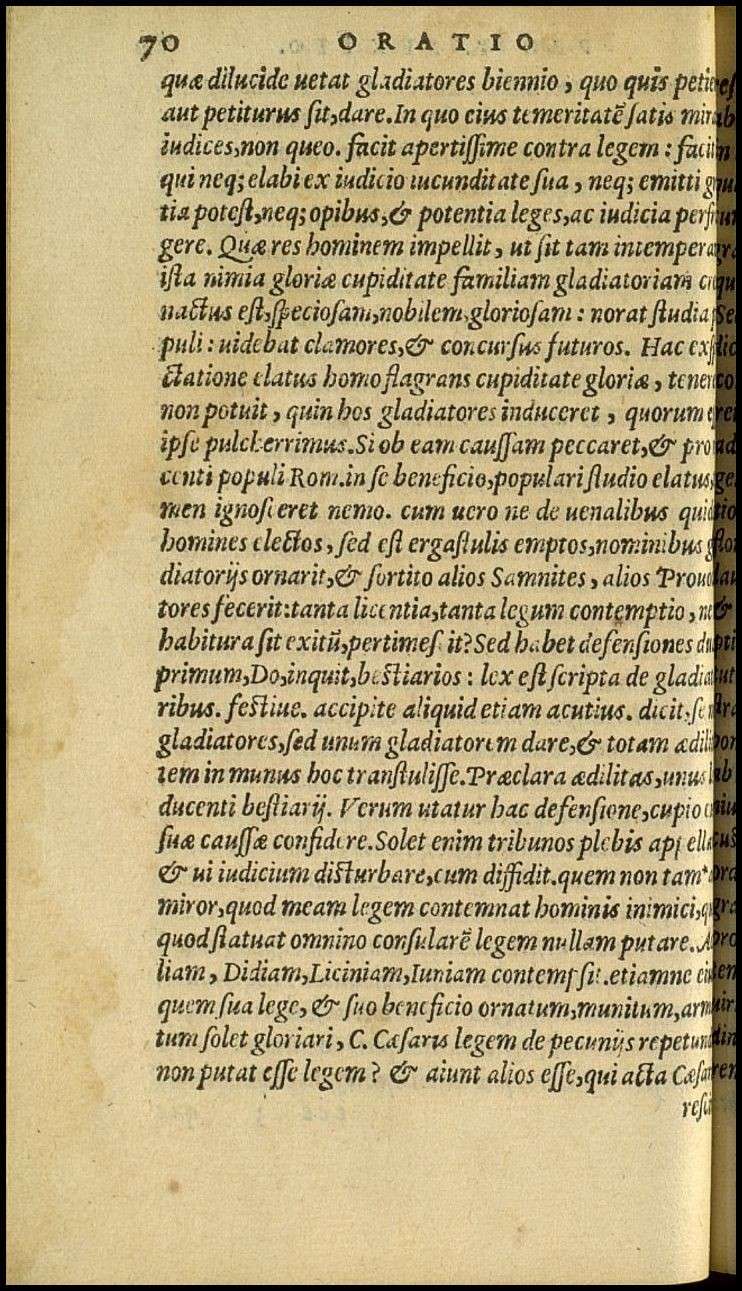 70 ORATIO
quæ dilucide uetat gladiatores biennio, quo quis
aut petiturus sit, dare. In quo eius temeritatẽ satis
iudices, non queo. facit apertissime contra legem:
qui neq; elabi ex iudicio iucunditate sua, neq; emitti
tia potest, neq; opibus, & potentia leges, ac iudicia
gere. Quæ res hominem impellit, ut sit tam
ista nimia gloriæ cupiditate familiam gladiatoriam
nactus est, speciosam, nobilem, gloriosam: norat studia
puli: uidebat clamores, & concursus futuros. Hac
ctatione elatus homo flagrans cupiditate gloriæ,
non potuit, quin hos gladiatores induceret, quorum
ipse pulcherrimus. Si ob eam caussam peccaret, &
centi populi Rom. in se beneficio, populari studio elatus,
men ignosceret nemo. cum uero ne de uenalibus
homines electos, sed est ergastulis emptos, nominibus
diatorijs ornarit, & sortito alios Samnites, alios
tores fecerit: tanta licentia, tanta legum contemptio,
habitura sit exitũ, pertimescit? Sed habet defensiones
primum, Do, inquit, bestiarios: lex est scripta de
ribus. festiue. accipite aliquid etiam acutius. dicit,
gladiatores, sed unum gladiatorem dare, & totam
tem in munus hoc transtulisse. Præclara ædilitas, unus
ducenti bestiarij. Verum utatur hac defensione, cupio
suæ caussæ confidere. Solet enim tribunos plebis
& ui iudicium disturbare, cum diffidit. quem non tam
miror, quod meam legem contemnat hominis inimici,
quod statuat omnino consularẽ legem nullam putare.
liam, Didiam, Liciniam, Iuniam contempsit. etiamne
quem sua lege, & suo beneficio ornatum, munitum,
tum solet gloriari, C. Cæsaris legem de pecunijs
non putat esse legem? & aiunt alios esse, qui acta